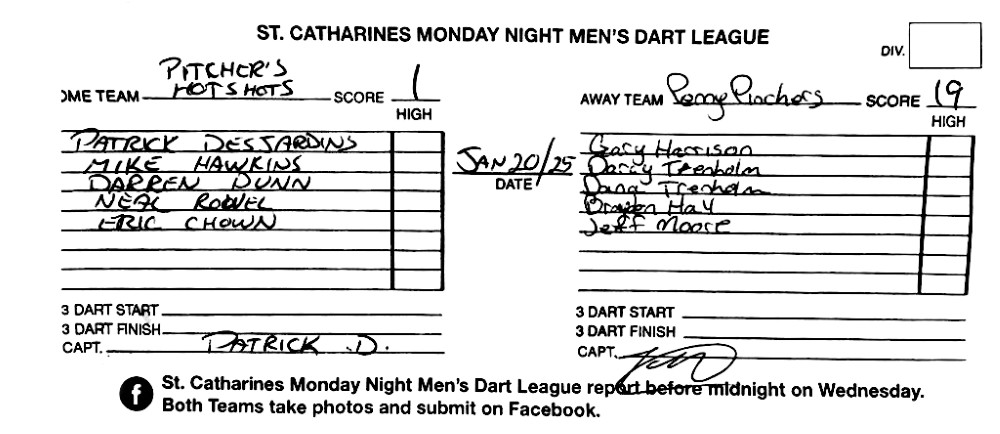 ST. CATHARINES MONDAY NIGHT MEN'S DART LEAGUE
DIV.
PITCHER'S
OME TEAM HOTSHOTS SCORE 1
HIGH
AWAY TEAM Penny Pinchers SCORE 19
HIGH
PATRICK DESJARDINS
MIKE HAWKINS
DARREN DUNN
NEAL
ERIC CHOWN
JAN 20/25
DATE
Gary Harrison
Darcy Trenholm
Dana Trenholm
Brayden Hay
Jeff Moore
3 DART START
3 DART FINISH
CAPT. PATRICK .D.
3 DART START
3 DART FINISH
CAPT.
f St. Catharines Monday Night Men's Dart League report before midnight on Wednesday.
Both Teams take photos and submit on Facebook.